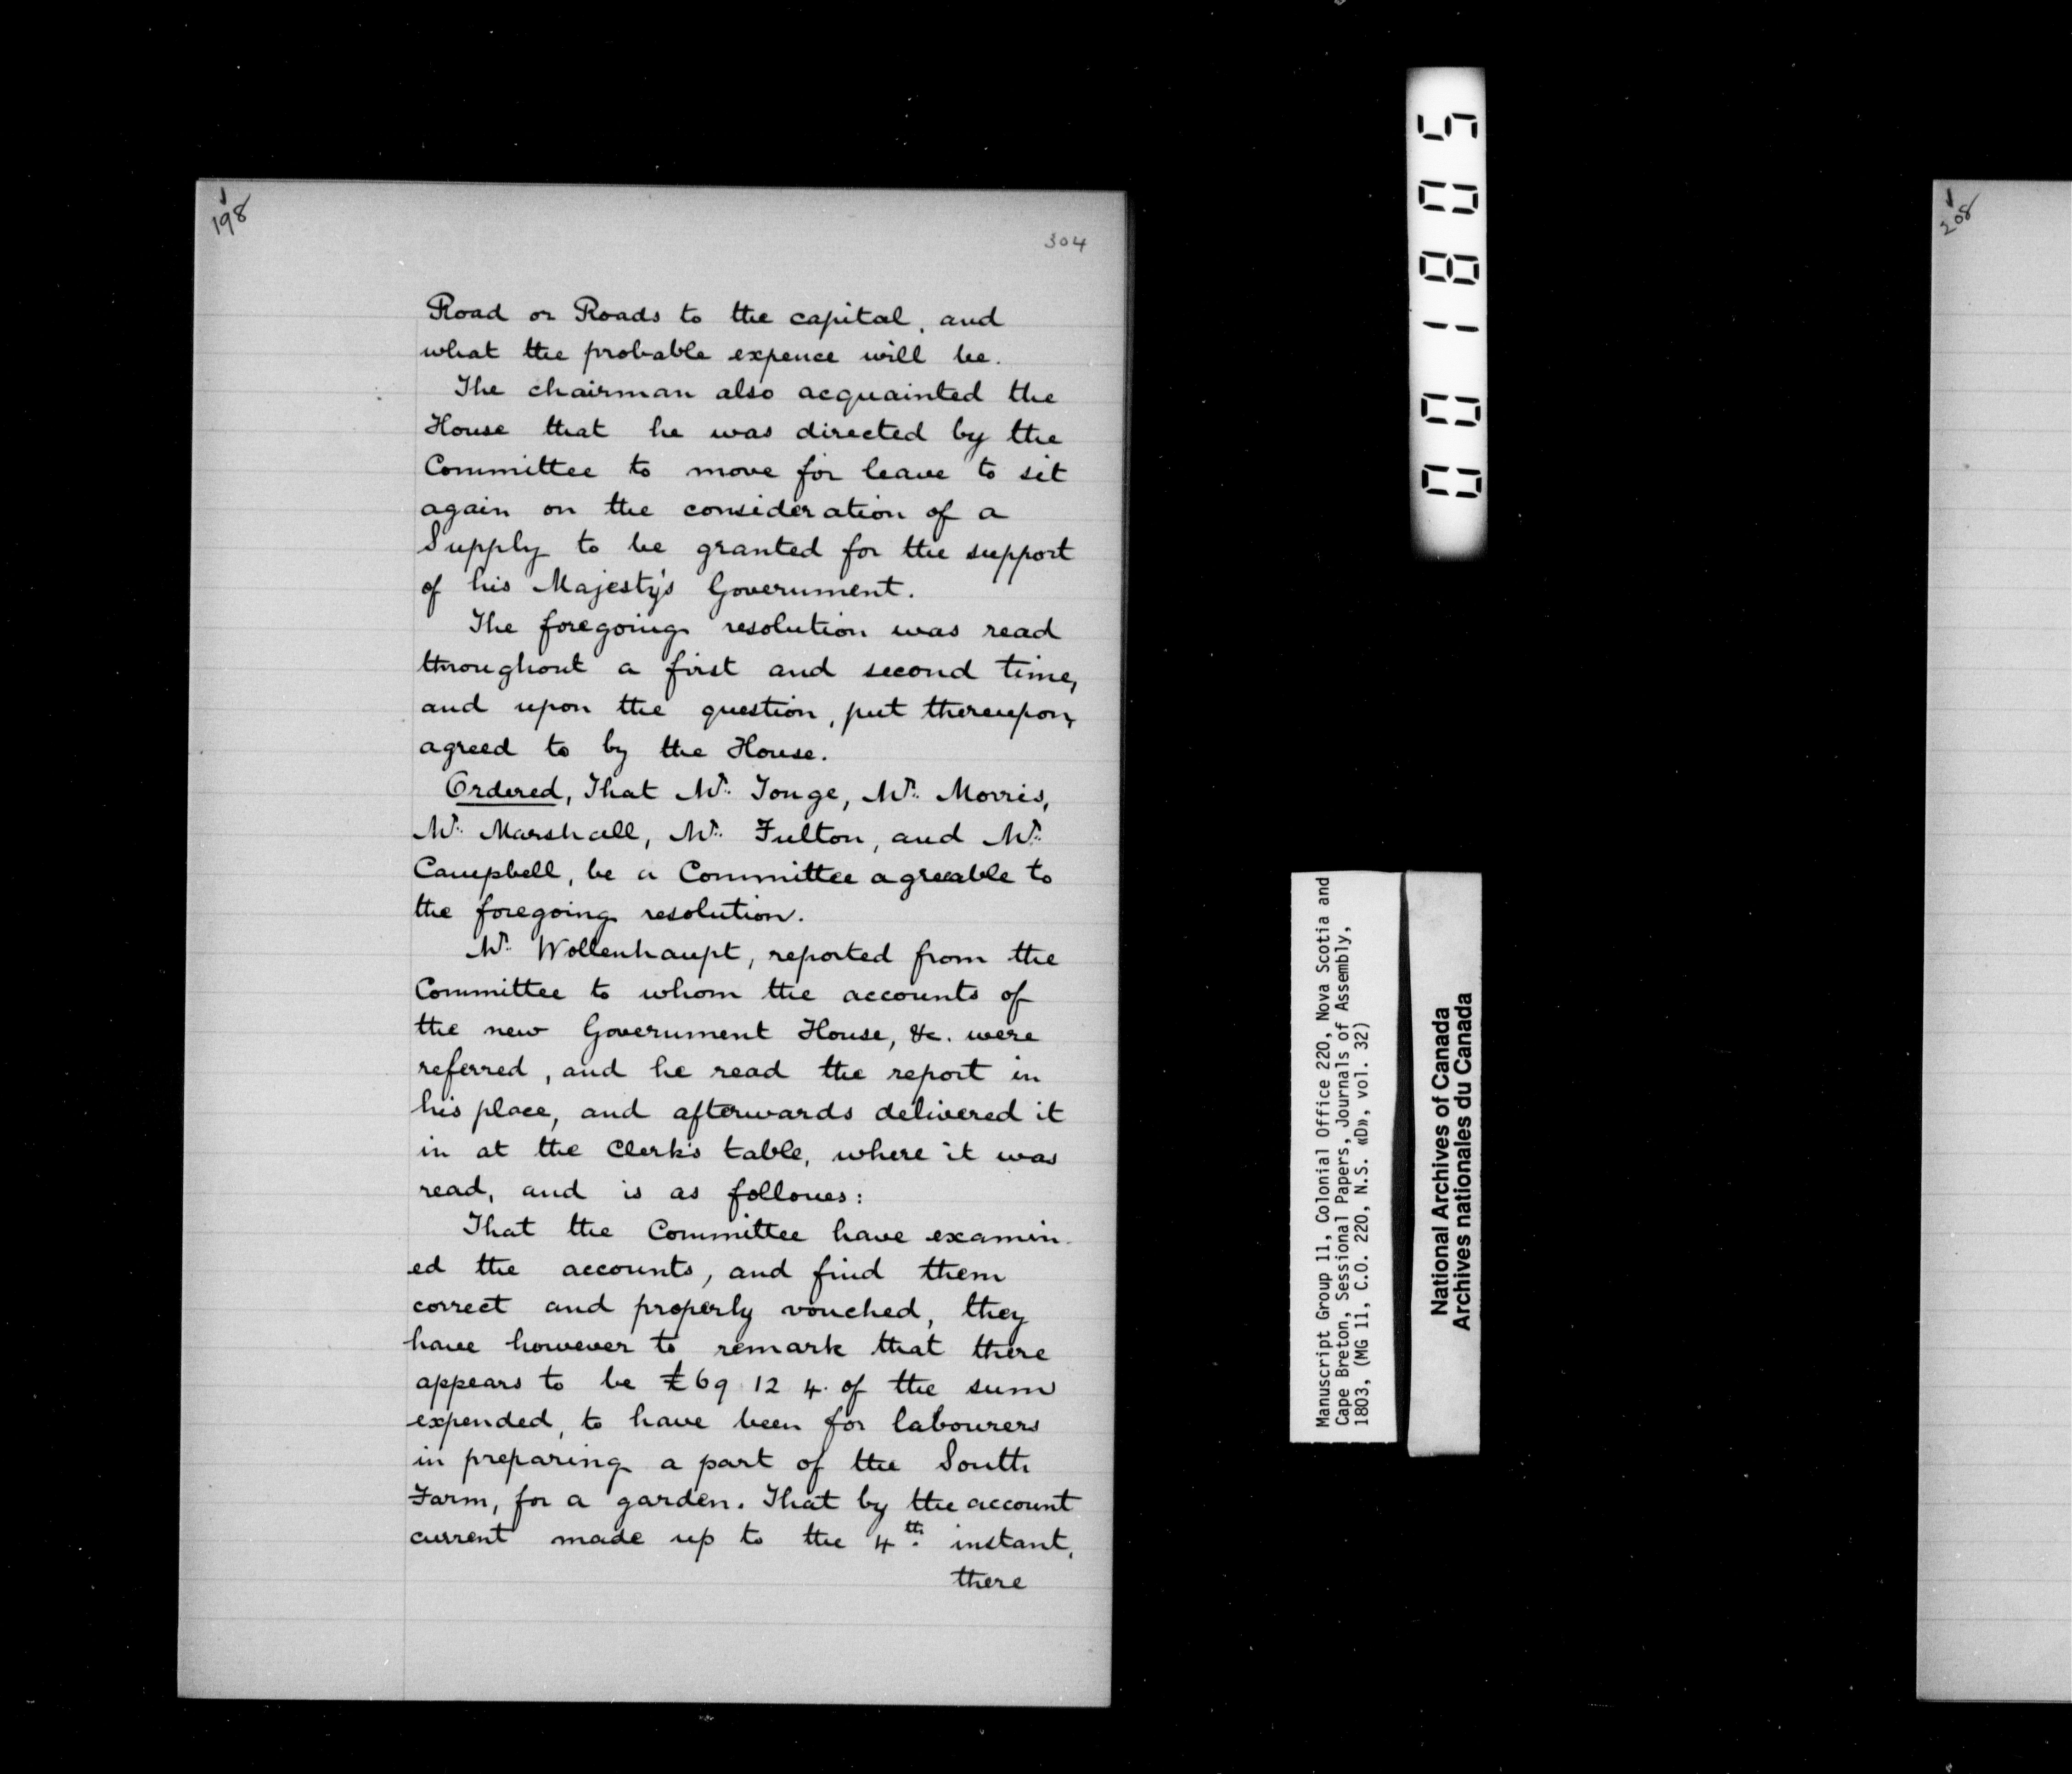 198
304
Road or Roads to the capital, and
what the probable expence will be.
The chairman also acquainted the
House that he was directed by the
Committee to move for leave to sit
again on the consideration of a
Supply to be granted for the support
of his Majesty's Government.
The foregoing resolution was read
throughout a first and second time,
and upon the question, put thereupon,
agreed to by the House.
Ordered, That Mr. Tonge, Mr. Morris,
Mr. Marshall, Mr. Fulton, and Mr.
Campbell, be a Committee agreable to
the foregoing resolution.
Mr. Wollenhaupt, reported from the
Committee to whom the accounts of
the new Government House, &c. were
referred, and he read the report in
his place, and afterwards delivered it
in at the Clerk's table, where it was
read, and is as follows:
That the Committee have examin-
ed the accounts, and find them
correct and properly vouched, they
have however to remark that there
appears to be £69 12 4. of the sum
expended, to have been for labourers
in preparing a part of the South
Farm, for a garden. That by the account
current made up to the 4th. instant,
there
001805
Manuscript Group 11, Colonial Office 220, Nova Scotia and
Cape Breton, Sessional Papers, Journals of Assembly,
1803, (MG 11, C.O. 220, N.S. «D», vol. 32)
National Archives of Canada
Archives nationales du Canada
208